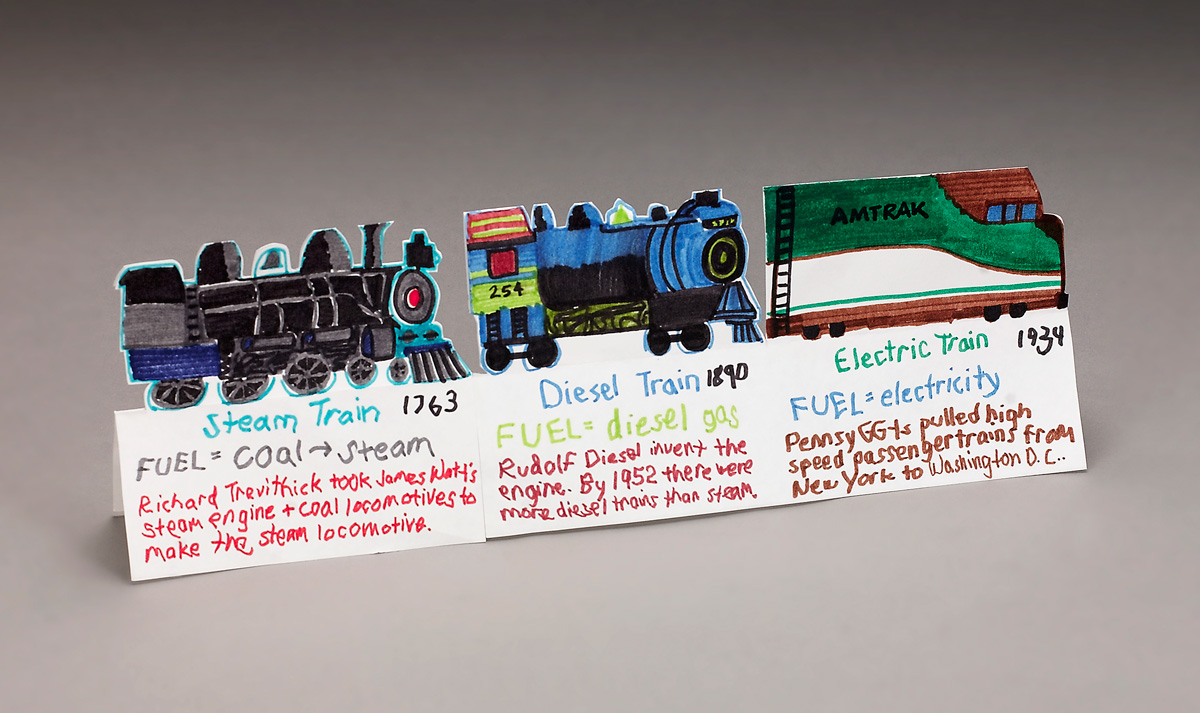 Steam Train 1763
FUEL = coal → steam
Richard Trevithick took James Watt's
steam engine + coal locomotives to
make the steam locomotive.
254
Diesel Train 1890
FUEL = diesel gas
Rudolf Diesel invent the
engine. By 1952 there were
more diesel trains than steam.
AMTRAK
Electric Train 1934
FUEL = electricity
Pennsy GG-1s pulled high
speed passenger trains from
New York to Washington D.C..